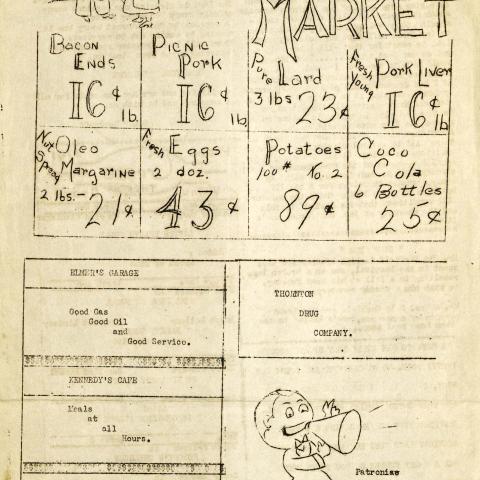 MARKET
Bacon
Ends
16¢ lb.
Picnic
Pork
16¢ lb.
Pure Lard
3 lbs 23¢
Fresh Young
Pork Liver
16¢ lb
Nut Spread
Oleo
Margarine
2 lbs.- 21¢
Fresh Eggs
2 doz.
43¢
Potatoes
100# No. 2
89¢
Coco
Cola
6 Bottles
25¢
ELMER'S GARAGE
Good Gas
Good Oil
and
Good Service.
KENNEDY'S CAFE
Meals
at
all
Hours.
THORNTON
DRUG
COMPANY.
Patronize